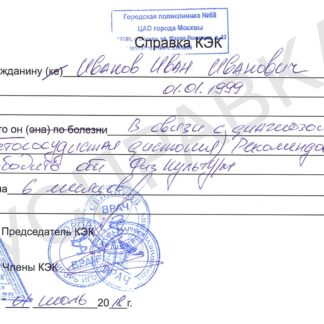 Городская поликлиника №68
ЦАО города Москвы
Справка КЭК
жданину (ке) Иванов Иван Иванович
01.01.1999
го он (она) по болезни В связи с диагнозом
тососудистая дистония, Рекоменд
физкультуры
на 6 месяцев
Председатель КЭК
Члены КЭК
ВРАЧ
ВРАЧ
01 июль 2018 г.
СПРАВКА